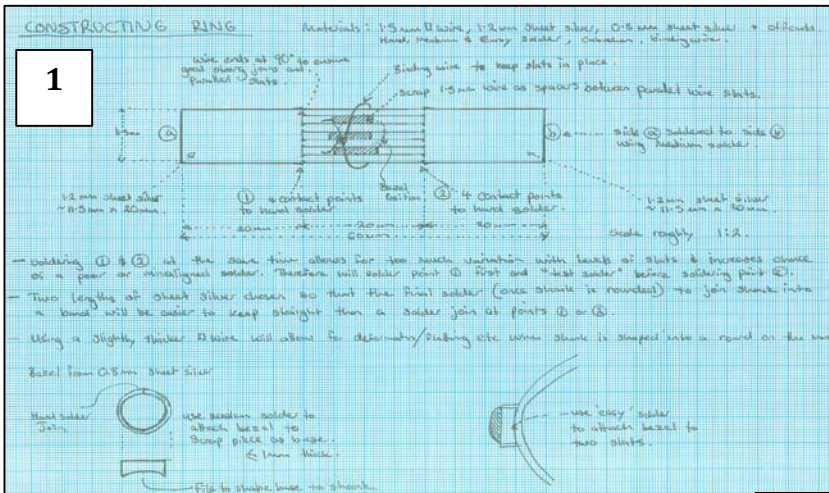 CONSTRUCTING RING
Materials: 1.5mm □ wire, 1.2mm sheet silver, 0.8mm sheet silver + offcuts.
Hard, Medium & Easy solder, binding wire.
1
wire ends at 90° to ensure
good strong joins and
parallel slats.
Binding wire to keep slats in place.
Scrap 1.5mm wire as spacers between parallel wire slats.
a
b
side a soldered to side b
using medium solder.
1.2mm sheet silver
~11.5mm x 20mm.
① 4 contact points
to hard solder
Bezel
Position
② 4 contact points
to hard solder.
1.2mm sheet silver
~11.5mm x 20mm.
20mm
20mm
20mm
60mm
Scale roughly 1:2.
- Soldering ① & ② at the same time allows for too much variation with levels of slats & increases chance
of a poor or misaligned solder. Therefore will solder point ① first and "test solder" before soldering point ②.
- Two lengths of sheet silver chosen so that the final solder (once shank is rounded) to join shank into
a band will be easier to keep straight than a solder join at points ① or ②.
- Using a slightly thicker □ wire will allow for deformation/filing etc when shank is shaped into a round on the
Bezel from 0.8mm sheet silver
Hard solder
Join
use medium solder to
attach bezel to
scrap piece as base.
1mm thick.
File to shape base to shank
use 'easy' solder
to attach bezel to
two slats.